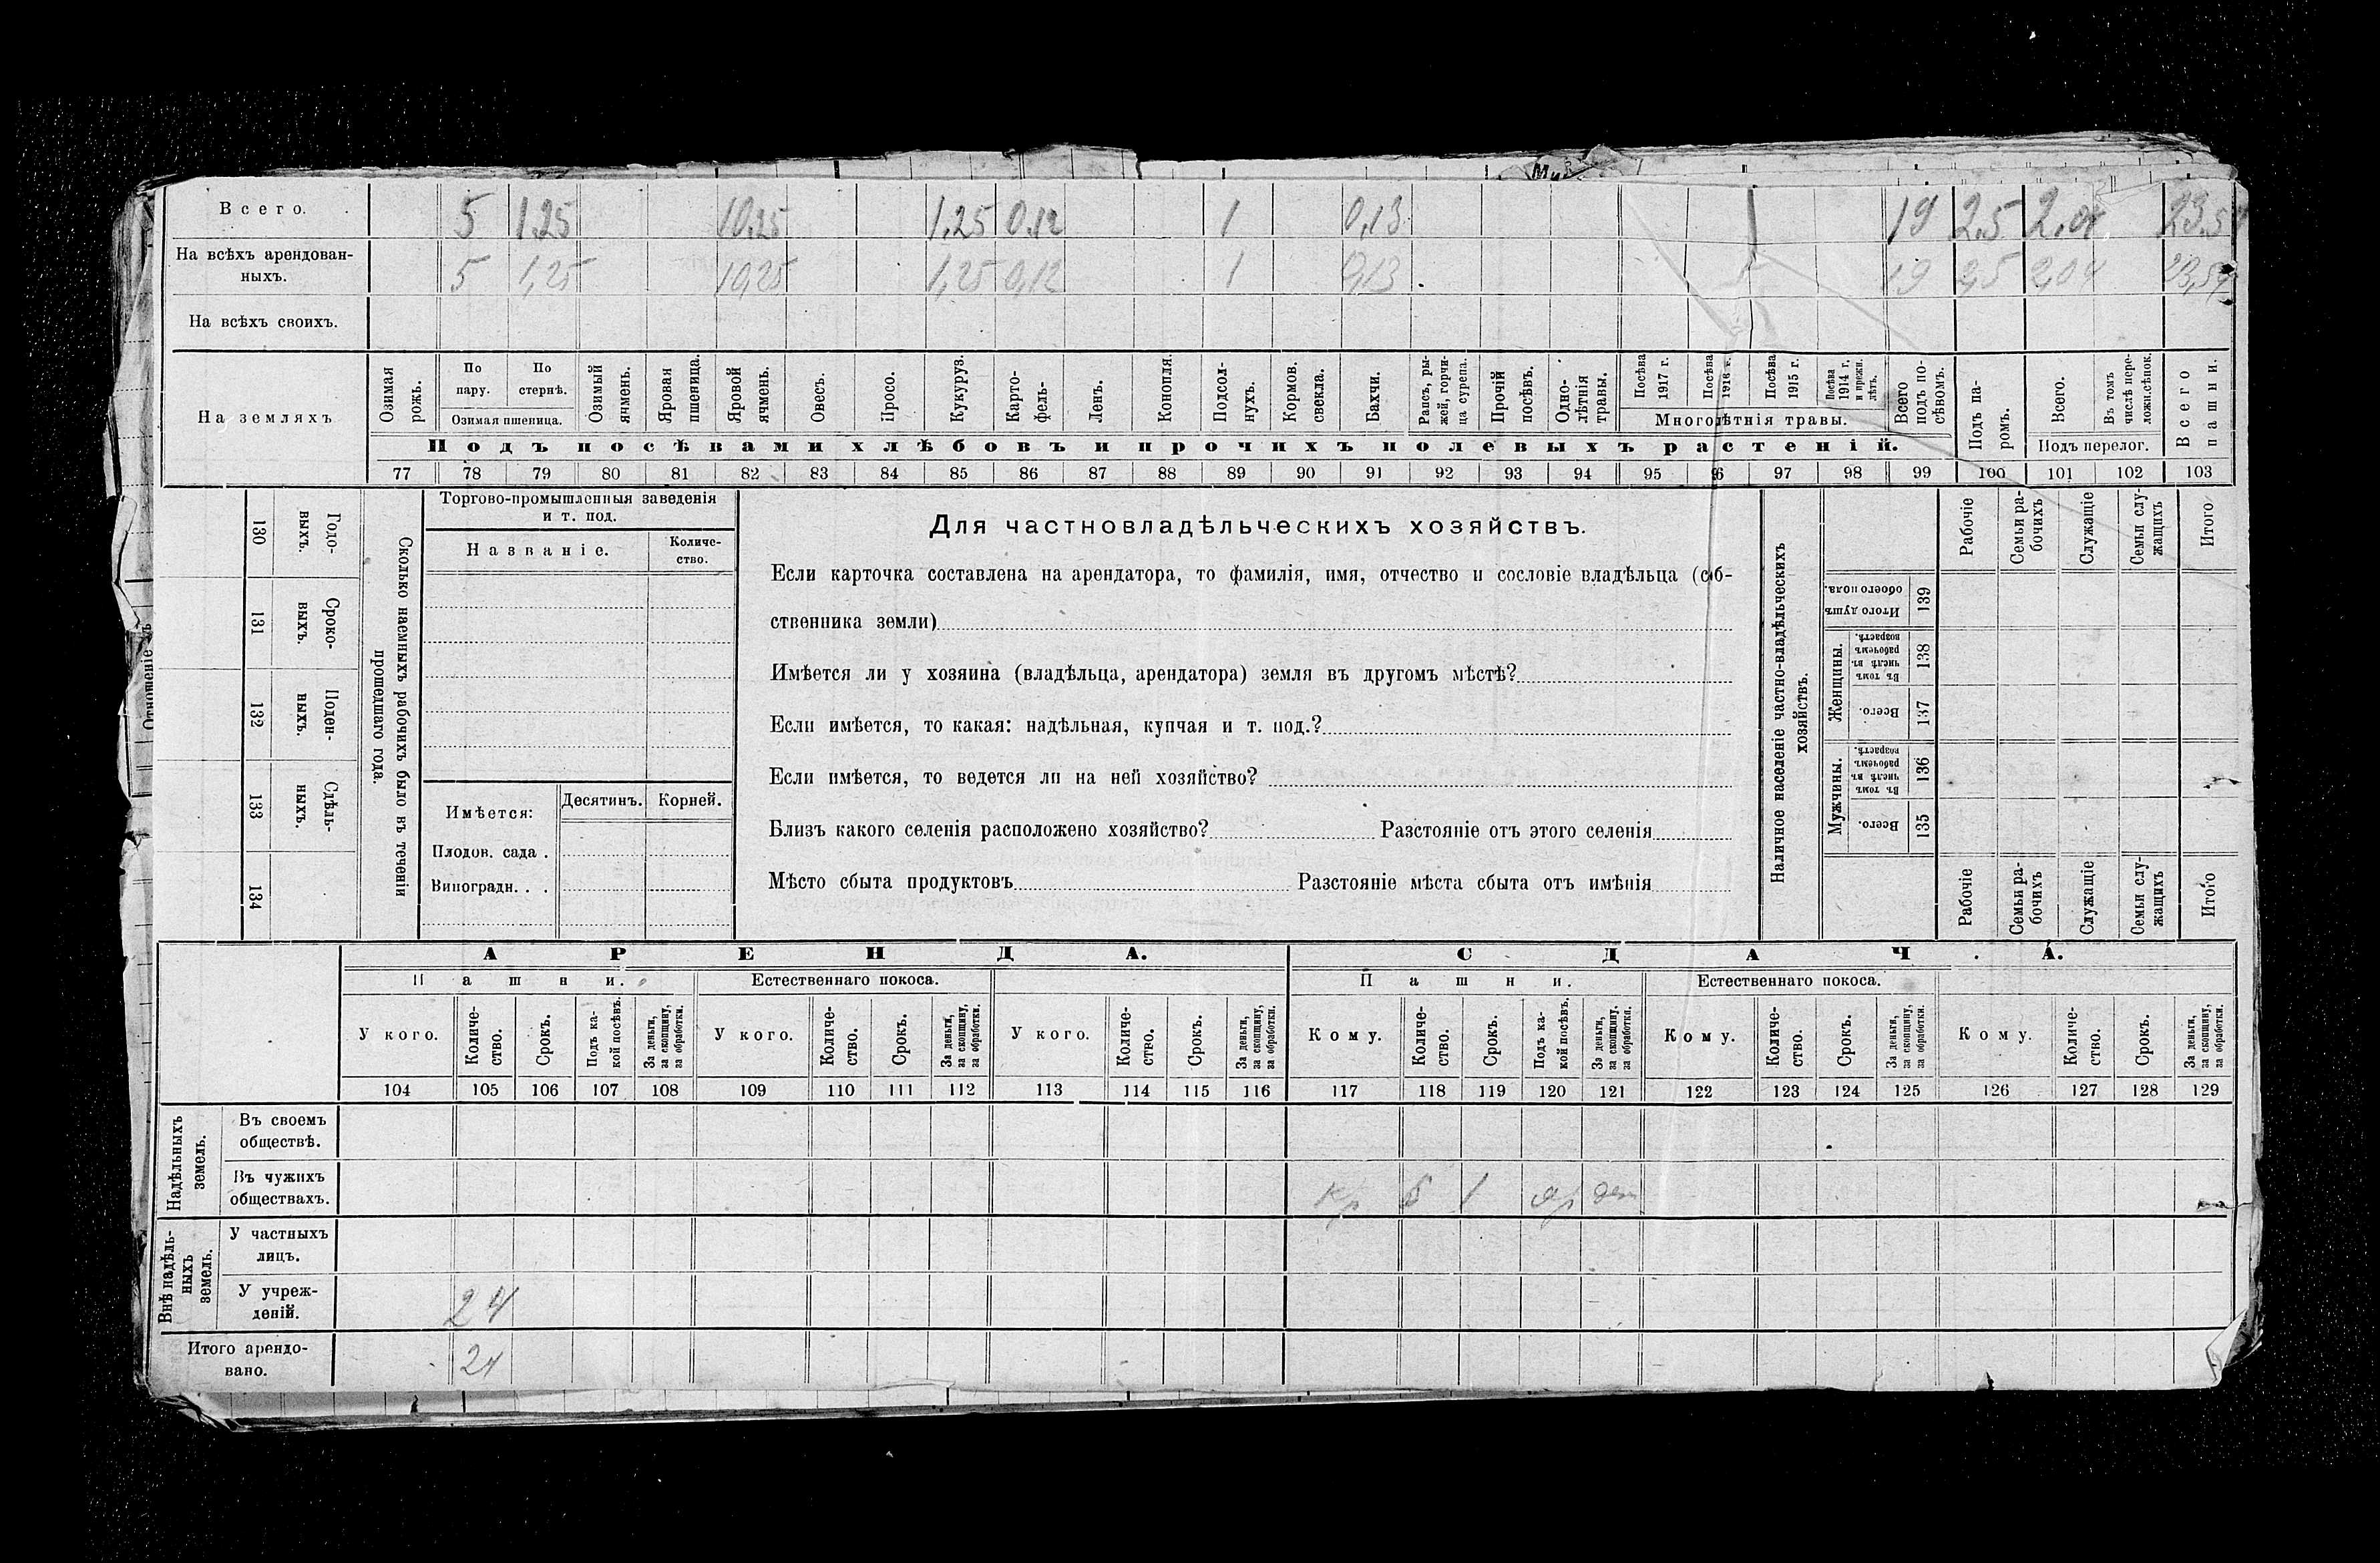 Всего. 5 1,25 10,25 1,25 0,12 1 0,13 19 2,5 2,04 23,5
На всѣхъ арендован-
ныхъ. 5 1,25 10,25 1,25 0,12 1 0,13 19 2,5 2,04 23,54
На всѣхъ своихъ.
На земляхъ
Озимая рожь.
По пару.
По стернѣ.
Озимая пшеница.
Озимый ячмень.
Яровая пшеница.
Яровой ячмень.
Овесъ.
Просо.
Кукуруз.
Карто-
фель-
Ленъ.
Конопля.
Подсол-
нухъ.
Кормов.
свекла.
Бахчи.
Рапсъ, ры-
жей, горчи-
ца сурепа.
Прочій
посѣвъ.
Одно-
лѣтнія
травы.
Посѣва
1917 г.
Посѣва
1916 г.
Посѣва
1915 г.
Посѣва
1914 г.
и прежн.
лѣтъ.
Многолѣтнія травы.
Всего
подъ по-
сѣвомъ.
Подъ посѣвами хлѣбовъ и прочихъ полевыхъ растеній.
Подъ па-
ромъ.
Всего.
Въ томъ
числѣ пере-
ложн.сѣнок.
Подъ перелог.
Всего
пашни.
77 78 79 80 81 82 83 84 85 86 87 88 89 90 91 92 93 94 95 96 97 98 99 100 101 102 103
130 Годо-
выхъ.
131 Сроко-
выхъ.
132 Поден-
ныхъ.
133 Сдѣль-
ныхъ.
134
Сколько наемныхъ рабочихъ было въ теченіи
прошедшаго года.
Отношеніе
Торгово-промышленныя заведенія
и т. под.
Названіе.
Количе-
ство.
Имѣется:
Десятинъ.
Корней.
Плодов. сада .
Виноградн. . .
Для частновладѣльческихъ хозяйствъ.
Если карточка составлена на арендатора, то фамилія, имя, отчество и сословіе владѣльца (соб-
ственника земли)
Имѣется ли у хозяина (владѣльца, арендатора) земля въ другомъ мѣстѣ?
Если имѣется, то какая: надѣльная, купчая и т. под.?
Если имѣется, то ведется ли на ней хозяйство?
Близъ какого селенія расположено хозяйство? Разстояніе отъ этого селенія
Мѣсто сбыта продуктовъ Разстояніе мѣста сбыта отъ имѣнія
Наличное населеніе частно-владѣльческихъ
хозяйствъ.
Рабочіе
Семьи ра-
бочихъ
Служащіе
Семьи слу-
жащихъ
Итого
Итого душъ
обоего пола. 139
Женщины.
Въ томъ
числѣ въ
рабочемъ
возрастѣ. 138
Всего. 137
Мужчины.
Въ томъ
числѣ въ
рабочемъ
возрастѣ. 136
Всего. 135
Рабочіе
Семьи ра-
бочихъ
Служащіе
Семьи слу-
жащихъ
Итого
АРЕНДА. СДАЧА.
Пашни. Естественнаго покоса. Пашни. Естественнаго покоса.
У кого.
Количе-
ство.
Срокъ.
Подъ ка-
кой посѣвъ.
За деньги,
за скопщину,
за обработки.
У кого.
Количе-
ство.
Срокъ.
За деньги,
за скопщину,
за обработки.
У кого.
Количе-
ство.
Срокъ.
За деньги,
за скопщину,
за обработки.
Кому.
Количе-
ство.
Срокъ.
Подъ ка-
кой посѣвъ.
За деньги,
за скопщину,
за обработки.
Кому.
Количе-
ство.
Срокъ.
За деньги,
за скопщину,
за обработки.
Кому.
Количе-
ство.
Срокъ.
За деньги,
за скопщину,
за обработки.
104 105 106 107 108 109 110 111 112 113 114 115 116 117 118 119 120 121 122 123 124 125 126 127 128 129
Надѣльныхъ
земель.
Въ своемъ
обществѣ.
Въ чужихъ
обществахъ. кр 1 яр ден
Внѣ надѣль-
ныхъ
земель.
У частныхъ
лицъ.
У учреж-
деній. 24
Итого арендо-
вано. 24